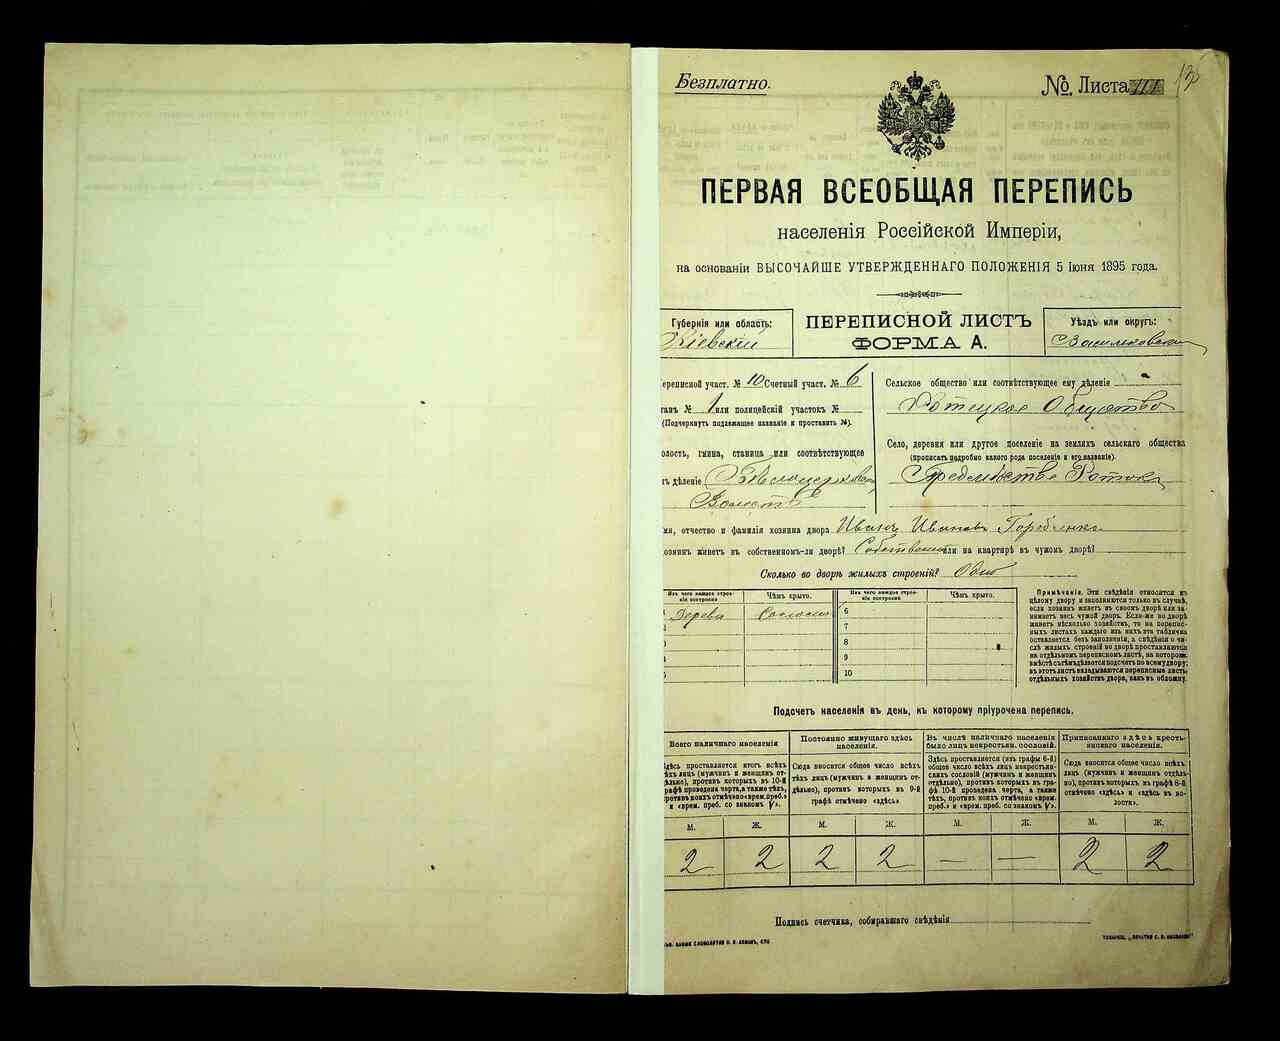 Безплатно.
№ Листа 111
ПЕРВАЯ ВСЕОБЩАЯ ПЕРЕПИСЬ
населенія Россійской Имперіи,
на основаніи ВЫСОЧАЙШЕ УТВЕРЖДЕННАГО ПОЛОЖЕНІЯ 5 Іюня 1895 года.
Губернія или область:
Кіевскій
ПЕРЕПИСНОЙ ЛИСТЪ
ФОРМА А.
Уѣздъ или округъ:
Васильковскій
ереписной участ. № 10 Счетный участ. № 6
танъ № 1 или полицейскій участокъ №
(Подчеркнуть подлежащее названіе и проставить №).
олость, гмина, станица или соотвѣтствующее
ъ дѣленіе Бѣлоцерковская
Волость
Сельское общество или соотвѣтствующее ему дѣленіе
Ротецкое Общество
Село, деревня или другое поселеніе на земляхъ сельскаго общества
(прописать подробно какого рода поселеніе и его названіе).
Предмѣстье Ротокъ
мя, отчество и фамилія хозяина двора Иванъ Ивановъ Горобленко
озяинъ живетъ въ собственномъ-ли дворѣ? или на квартирѣ въ чужомъ дворѣ?
Сколько во дворѣ жилыхъ строеній? Одно
Изъ чего каждое строеніе построено
Чѣмъ крыто.
Изъ чего каждое строеніе построено
Чѣмъ крыто.
Дерева Соломою 6
7
8
9
10
Примѣчаніе. Эти свѣдѣнія относятся къ
цѣлому двору и заполняются только въ случаѣ,
если хозяинъ живетъ въ своемъ дворѣ или занимаетъ
весь чужой дворъ. Если-же во дворѣ
живетъ нѣсколько хозяйствъ, то на переписныхъ
листахъ каждаго изъ нихъ эта табличка
оставляется безъ заполненія, а свѣдѣнія о числѣ
жилыхъ строеній во дворѣ проставляются
на отдѣльномъ переписномъ листѣ, на которомъ
вмѣстѣ съ тѣмъ дѣлается подсчетъ по всему двору;
въ этотъ листъ вкладываются переписные листы
отдѣльныхъ хозяйствъ двора, какъ въ обложку.
Подсчетъ населенія въ день, къ которому пріурочена перепись.
Всего наличнаго населенія
Постоянно живущаго здѣсь населенія.
Въ числѣ наличнаго населенія было лицъ некрестьян. сословій.
Приписаннаго здѣсь крестьянскаго населенія.
Здѣсь проставляется итогъ всѣхъ
тѣхъ лицъ (мужчинъ и женщинъ отдѣльно),
противъ которыхъ въ 10-й
графѣ проведена черта, а также тѣхъ,
противъ коихъ отмѣчено «врем. преб.»
и «врем. преб. со знакомъ V».
Сюда вносится общее число всѣхъ
тѣхъ лицъ (мужчинъ и женщинъ отдѣльно),
противъ которыхъ въ 9-й
графѣ отмѣчено «здѣсь»
Здѣсь проставляется (изъ графы 6-й)
общее число всѣхъ лицъ некрестьянскихъ
сословій (мужчинъ и женщинъ
отдѣльно), противъ которыхъ въ графѣ
10-й проведена черта, а также
тѣхъ, противъ коихъ отмѣчено «врем.
преб.» и «врем. преб. со знакомъ V».
Сюда вносится общее число всѣхъ
лицъ (мужчинъ и женщинъ отдѣльно),
противъ которыхъ въ графѣ 8-й
отмѣчено «здѣсь» и «здѣсь въ волости».
М. Ж. М. Ж. М. Ж. М. Ж.
2 2 2 2 — — 2 2
Подпись счетчика, собиравшаго свѣдѣнія